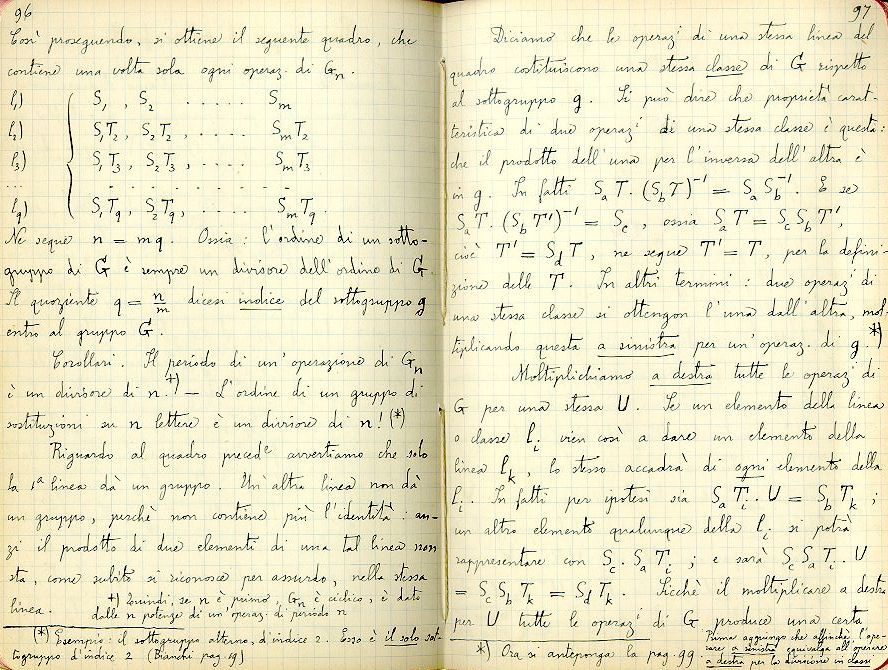 96
Così proseguendo, si ottiene il seguente quadro, che
contiene una volta sola ogni operaz. di Gₙ.
l₁) S₁ , S₂ ..... Sₘ
l₂) S₁T₂, S₂T₂, ..... SₘT₂
l₃) S₁T₃, S₂T₃, ..... SₘT₃
... . . . . . . . . .
l_q) S₁T_q, S₂T_q, ..... SₘT_q.
Ne segue n = mq. Ossia: l'ordine di un sotto-
gruppo di G è sempre un divisore dell'ordine di G.
Il quoziente q = n/m dicesi indice del sottogruppo g
entro al gruppo G.
Corollari. Il periodo di un'operazione di Gₙ
è un divisore di n.⁺) — L'ordine di un gruppo di
sostituzioni su n lettere è un divisore di n! (*)
Riguardo al quadro precedᵉ avvertiamo che solo
la 1ᵃ linea dà un gruppo. Un'altra linea non dà
un gruppo, perchè non contiene più l'identità: an-
zi il prodotto di due elementi di una tal linea non
sta, come subito si riconosce per assurdo, nella stessa
linea.
+) Quindi, se n è primo, Gₙ è ciclico, è dato
dalle n potenze di un'operaz. di periodo n
(*) Esempio: il sottogruppo alterno, d'indice 2. Esso è il solo sot-
togruppo d'indice 2 (Bianchi pag. 19)
97
Diciamo che le operazⁱ di una stessa linea del
quadro costituiscono una stessa classe di G rispetto
al sottogruppo g. Si può dire che proprietà carat-
teristica di due operazⁱ di una stessa classe è questa:
che il prodotto dell'una per l'inversa dell'altra è
in g. In fatti SₐT.(S_bT)⁻¹ = SₐS_b⁻¹. E se
SₐT.(S_bT')⁻¹ = S_c, ossia SₐT = S_cS_bT',
cioè T' = S_dT, ne segue T' = T, per la defini-
zione delle T. In altri termini: due operazⁱ di
una stessa classe si ottengon l'una dall'altra, mol-
tiplicando questa a sinistra per un'operaz. di g.*)
Moltiplichiamo a destra tutte le operazⁱ di
G per una stessa U. Se un elemento della linea
o classe lᵢ vien così a dare un elemento della
linea l_k, lo stesso accadrà di ogni elemento della
lᵢ. In fatti per ipotesi sia SₐTᵢ.U = S_bT_k;
un altro elemento qualunque della lᵢ si potrà
rappresentare con S_c.SₐTᵢ; e sarà S_cSₐTᵢ.U
= S_cS_bT_k = S_dT_k. Sicchè il moltiplicare a destra
per U tutte le operazⁱ di G produce una certa
*) Ora si anteponga la pag. 99.
Prima aggiungo che affinchè l'ope-
rare a sinistra equivalga all'operare
a destra per la divisione in classi